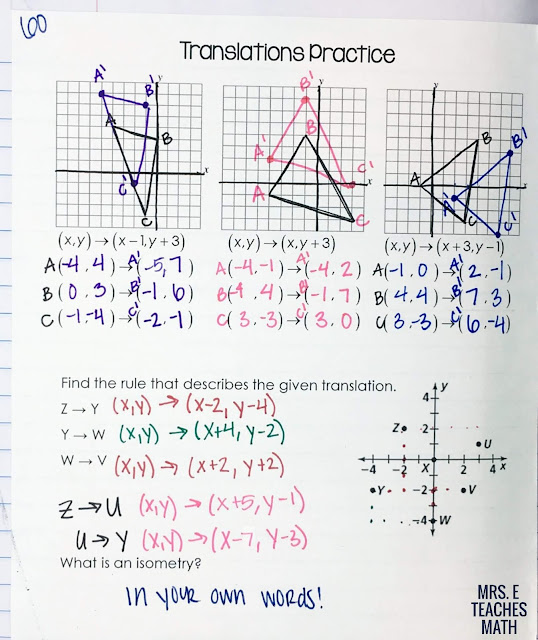 60
Translations Practice
A' B' A B C' C x y
B' B A' C' A C x y
B B' A A' C C' x y
(x,y) → (x-1,y+3) (x,y) → (x,y+3) (x,y) → (x+3,y-1)
A(-4,4) → A'(-5,7) A(-4,-1) → A'(-4,2) A(-1,0) → A'(2,-1)
B(0,3) → B'(-1,6) B(-1,4) → B'(-1,7) B(4,4) → B'(7,3)
C(-1,-4) → C'(-2,-1) C(3,-3) → C'(3,0) C(3,-3) → C'(6,-4)
Find the rule that describes the given translation.
Z → Y (x,y) → (x-2, y-4)
Y → W (x,y) → (x+4, y-2)
W → V (x,y) → (x+2, y+2)
Z → U (x,y) → (x+5, y-1)
U → Y (x,y) → (x-7, y-3)
y
4
Z 2
U
-4 -2 X 2 4 x
Y -2 V
-4 W
What is an isometry?
in your own words!
MRS. E
TEACHES
MATH